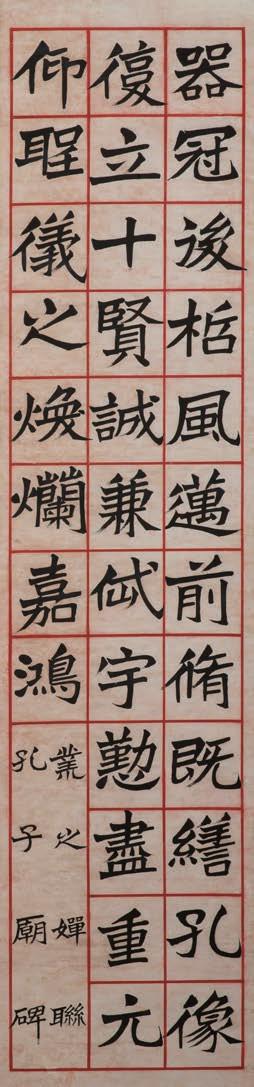 器冠後哲風邁前脩既繕孔像
復立十賢誠兼岱宇懃盡重元
仰聖儀之煥爛嘉鴻
業之嬋聯
孔子廟碑